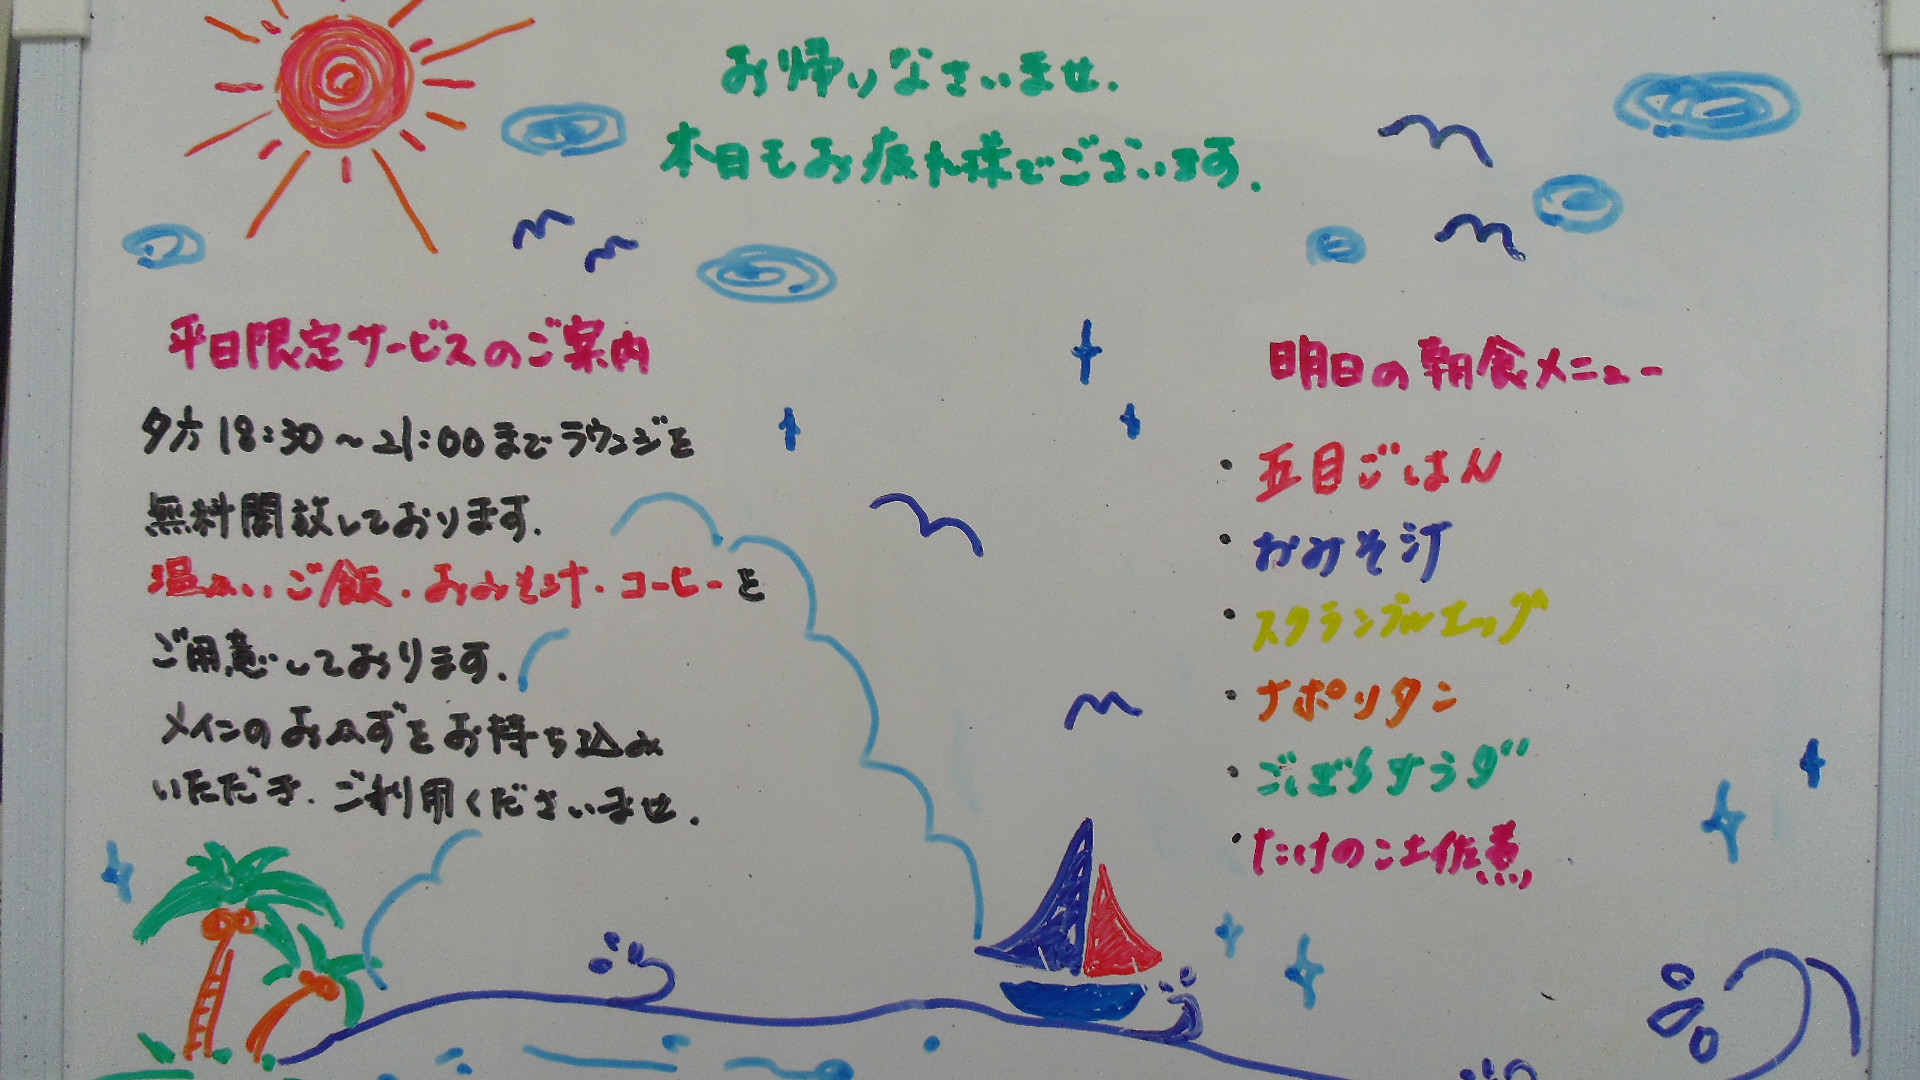 お帰りなさいませ.
本日もお疲れ様でございます.
平日限定サービスのご案内
夕方18:30～21:00までラウンジを
無料開放しております.
温かいご飯・おみそ汁・コーヒーを
ご用意しております.
メインのおかずをお持ち込み
いただき.ご利用くださいませ.
明日の朝食メニュー
・五目ごはん
・おみそ汁
・スクランブルエッグ
・ナポリタン
・ごぼうサラダ
・たけのこ土佐煮